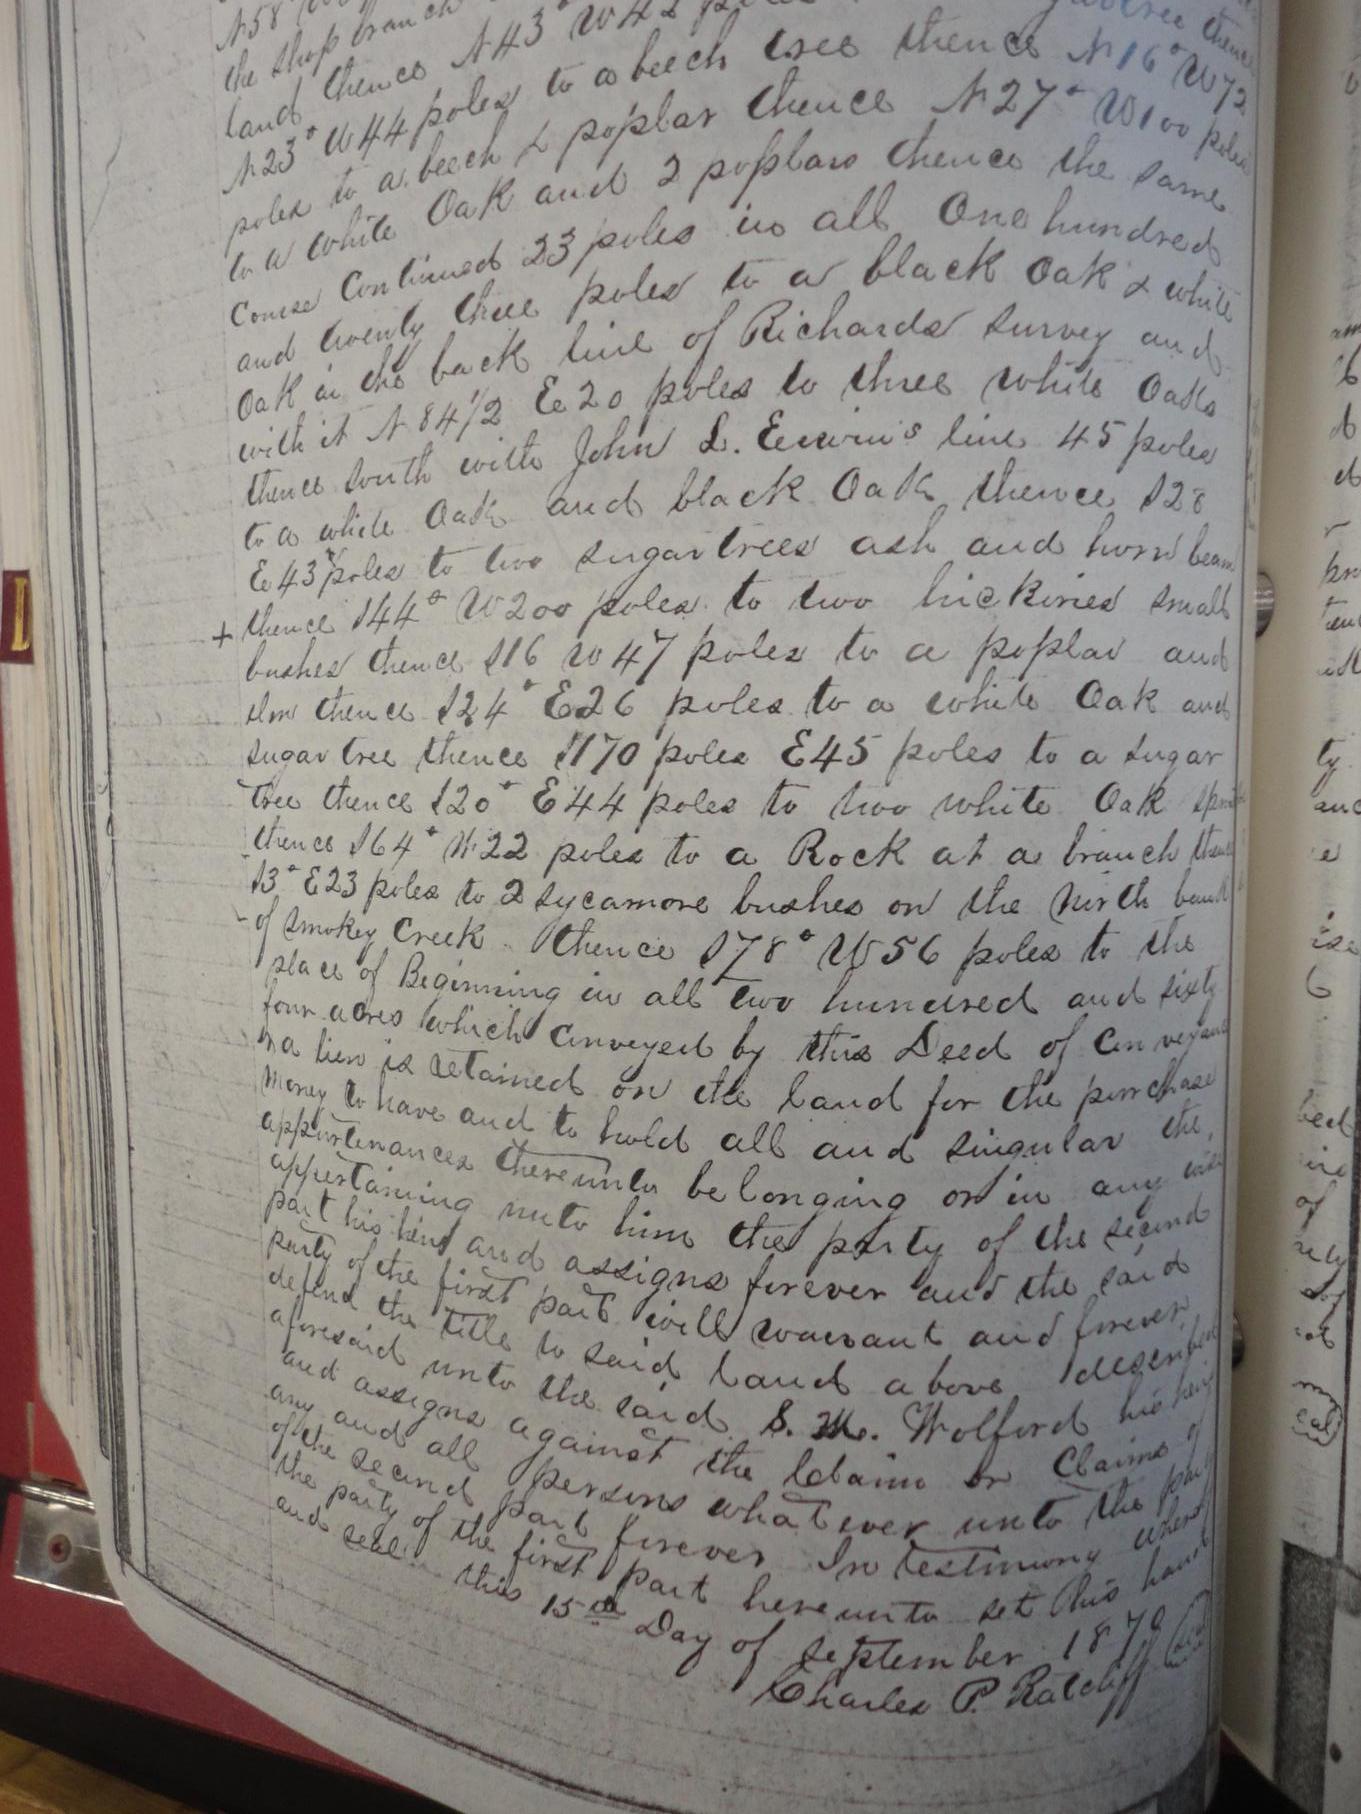 N58° W
the shop branch
land thence N43° W42 thence
N23° W44 poles to a beech tree thence N16° W72
poles to a beech & poplar thence N27° W100 poles
to a white Oak and 2 poplars thence the same
Course Continued 23 poles in all One hundred
and twenty three poles to a black Oak & white
Oak in the back line of Richards survey and
with it N84 1/2 E20 poles to three white Oaks
thence South with John L. Erwin's line 45 poles
to a white Oak and black Oak thence S28
E43 poles to two sugartrees ash and horn beam
+ thence S44° W200 poles to two hickories small
bushes thence S16 W47 poles to a poplar and
elm thence S24° E26 poles to a white Oak and
sugar tree thence S170 poles E45 poles to a sugar
tree thence S20° E44 poles to two white Oak
thence S64° W22 poles to a Rock at a branch thence
S3° E23 poles to 2 sycamore bushes on the North bank
of Smokey Creek thence S78° W56 poles to the
place of Beginning in all two hundred and sixty
four acres which Conveyed by this Deed of Conveyance
a lien is retained on the land for the purchase
money to have and to hold all and singular the
appurtenances thereunto belonging or in any wise
appertaining unto him the party of the second
part his heirs and assigns forever and the said
party of the first part will warrant and forever
defend the title to said land above described
aforesaid unto the said S. M. Wolford his heirs
and assigns against the Claim or Claims of
any and all persons whatever unto the party
of the second part forever In testimony whereof
the party of the first part hereunto set this hand
and seal this 15th Day of September 1870
Charles P. Ratcliff